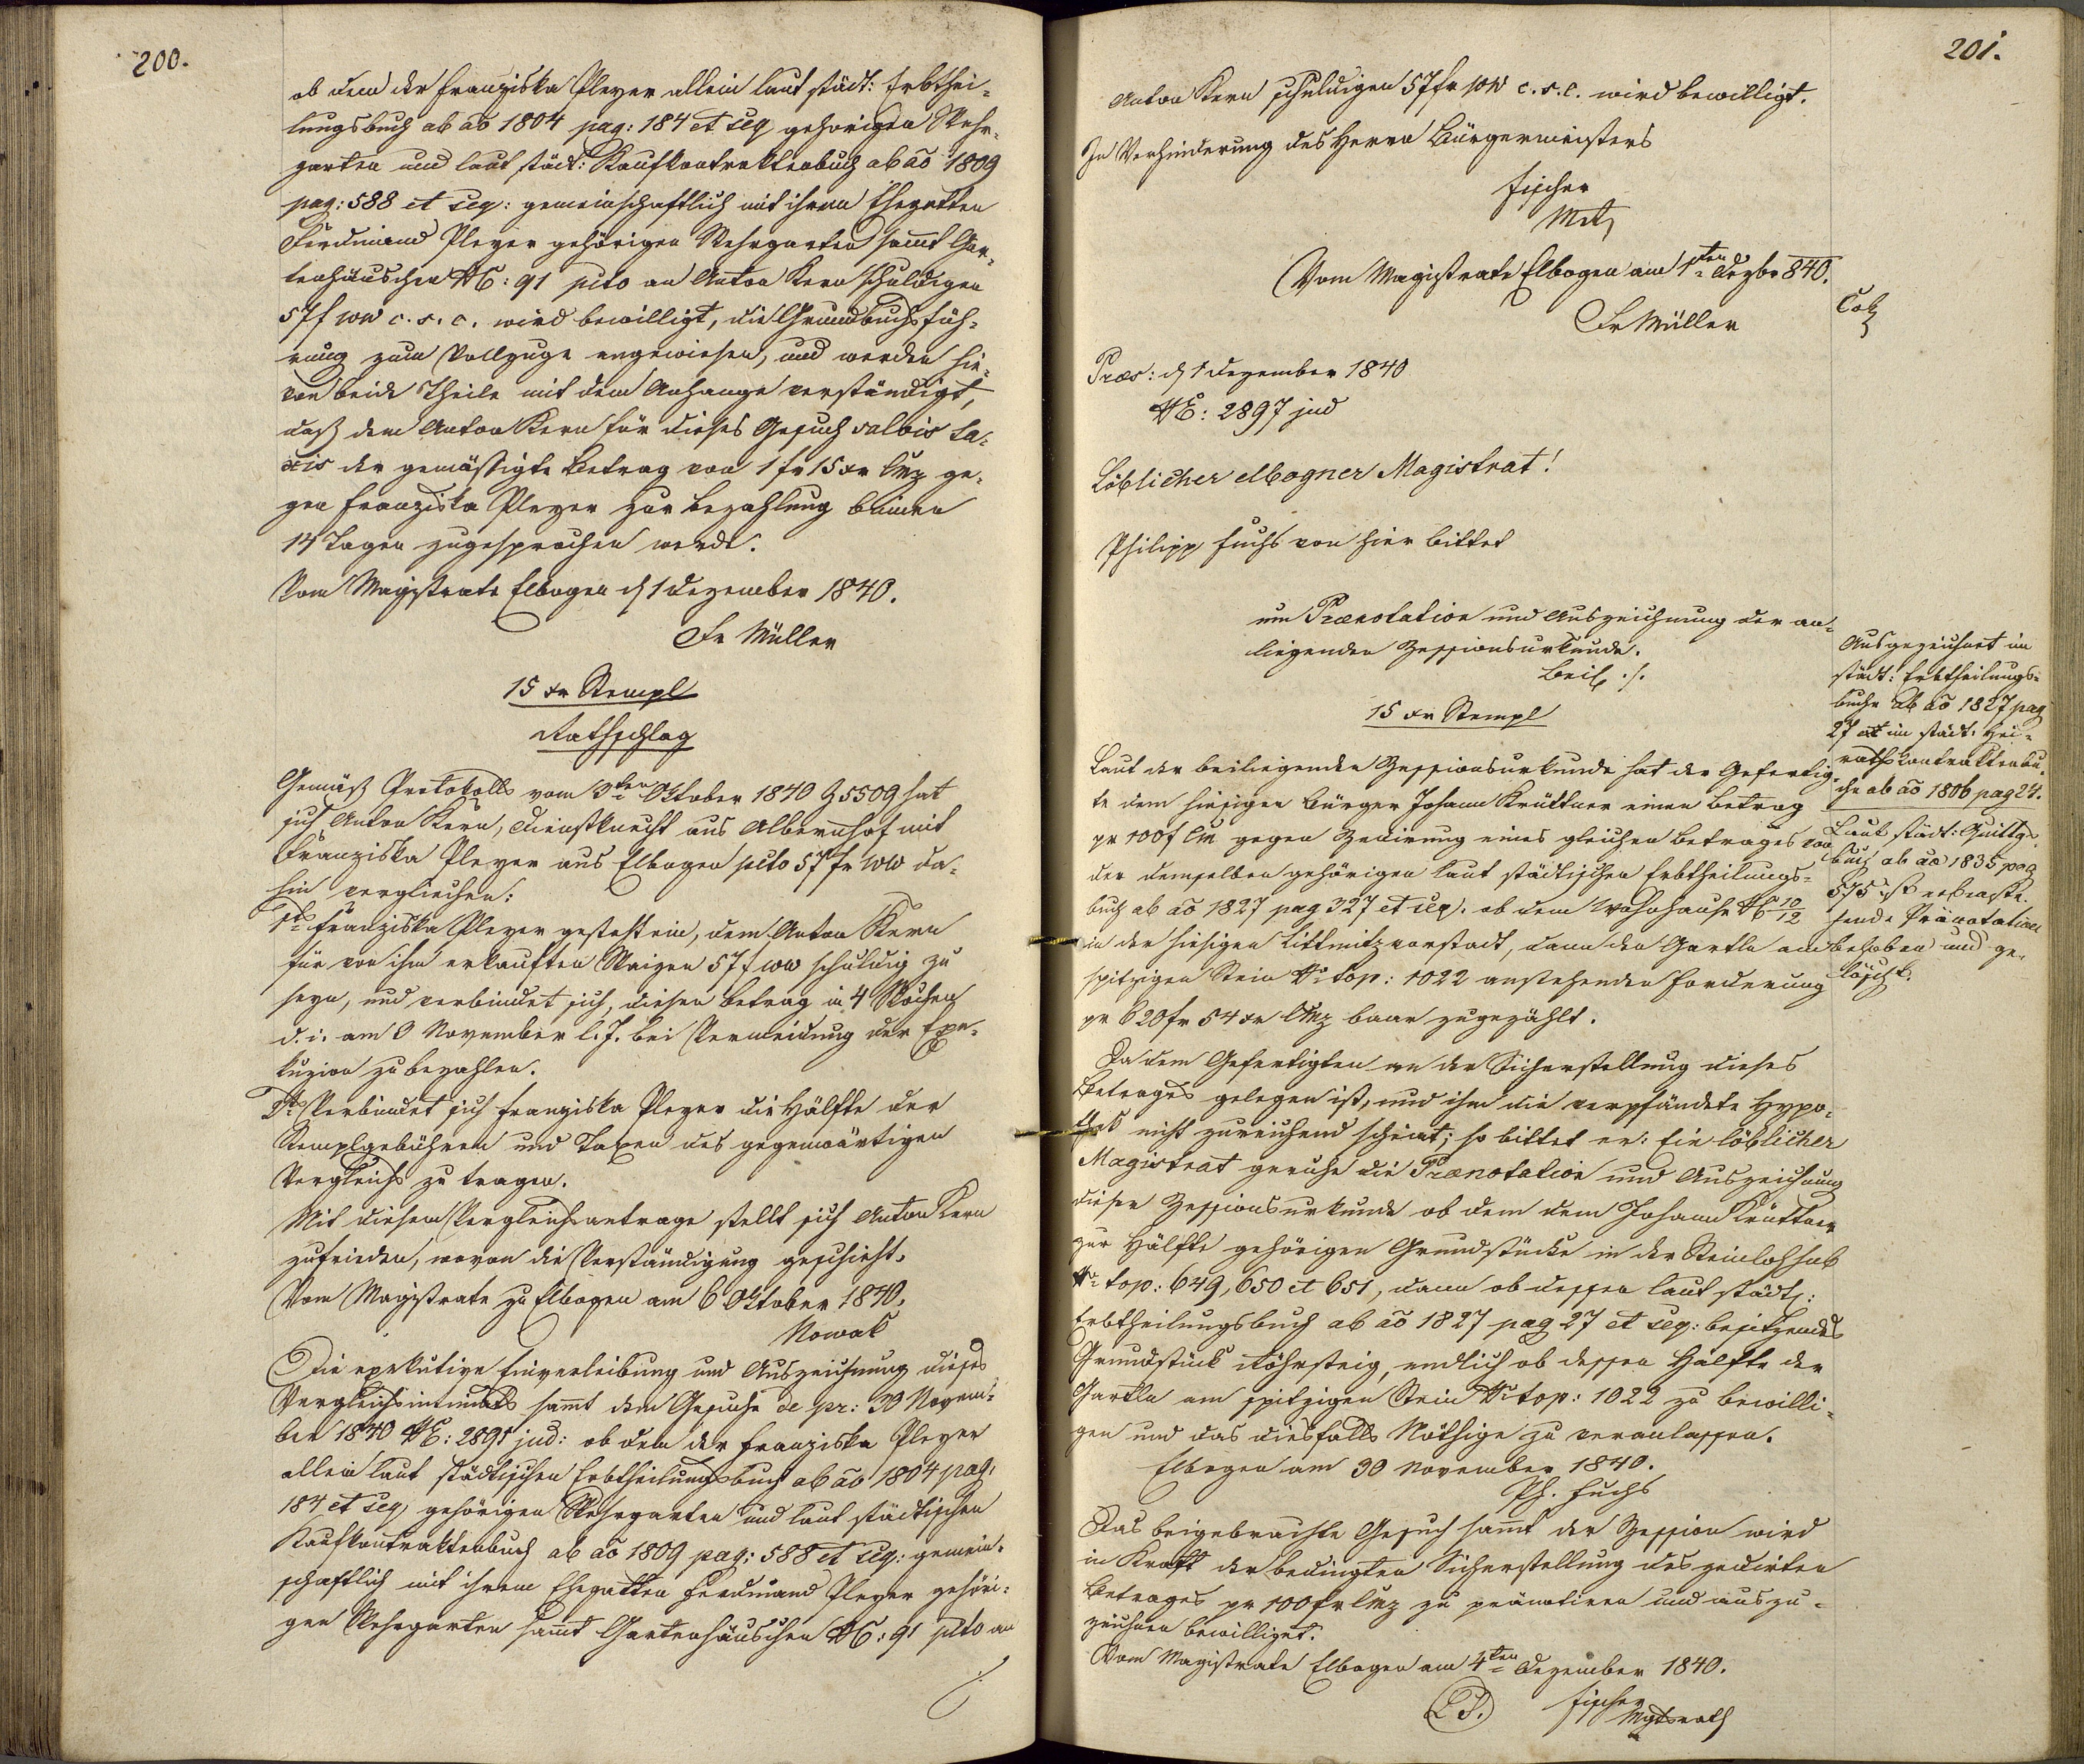 200.
ob dem der Franziska Pleyer allein laut städt: Erbthei-
lungsbuch ab ao 1804 pag: 184 et seq gehörigen Wehr-
garten und laut städt: Kaufkontraktenbuch ab ao 1809
pag: 588 et seq: gemeinschaftlich mit ihrem Ehegatten
Ferdinand Pleyer gehörigen Wehrgarten sammt Gar-
tenhäuschen NC: 91 pcto an Anton Kern schuldigen
57 f WW c. s. c. wird bewilligt, die Grundbuchsfüh-
rung zum Vollzuge angewiesen, und werden hie-
von beide Theile mit dem Anhange verständigt,
daß dem Anton Kern für dieses Gesuch salvis ta-
xis der gemäßigte Betrag von 1 fr 15 xr CMz ge-
gen Franziska Pleyer zur Bezahlung binnen
14 Tagen zugesprochen werde.
Vom Magistrate Elbogen d 1 Dezember 1840.
Fr Müller
15 xr Stempl
Rathschlag
Gemäß Protokolls vom 3ten Oktober 1840 Z 5509 hat
sich Anton Kern, Dienstknecht aus Albernhof mit
Franziska Pleyer aus Elbogen pcto 57 fr WW da-
hin verglichen:
1tens Franziska Pleyer gesteht ein, dem Anton Kern
für von ihm erkauften Waizen 57 f WW schuldig zu
seyn, und verbindet sich, diesen Betrag in 4 Wochen
d. i. am 3 November l. J. bei Vermeidung der Exe-
kuzion zu bezahlen.
2tens Verbindet sich Franziska Pleyer die Hälfte der
Stemplgebühren und Taxen des gegenwärtigen
Vergleichs zu tragen.
Mit diesem Vergleichsantrage stellt sich Anton Kern
zufrieden, wovon die Verständigung geschieht.
Vom Magistrate zu Elbogen am 6 Oktober 1840.
Nowak
Die exekutive Einverleibung und Auszeichnung dieses
Vergleichs sammt dem Gesuche de pr: 30 Novem-
ber 1840 NE: 2891 jud: ob dem der Franziska Pleyer
allein laut städtischen Erbtheilungsbuch ab ao 1804 pag:
184 et seq gehörigen Wehrgarten und laut städtischen
Kaufkontraktenbuch ab ao 1809 pag: 588 et seq: gemein-
schaftlich mit ihrem Ehegatten Ferdinand Pleyer gehöri-
gen Wehrgarten sammt Gartenhäuschen NC: 91 pcto an
201.
Anton Kern schuldigen 57 fr WW c. s. c. wird bewilligt.
In Verhinderung des Herrn Bürgermeisters
Fischer
Vom Magistrate Elbogen am 1ten Dezbr 840.
Fr Müller
Präs: d 1 Dezember 1840
NE: 2897 jud
Löblicher elbogner Magistrat!
Philipp Fuchs von hier bittet
um Praenotation und Auszeichnung der an-
liegenden Zessionsurkunde.
Beil ./.
15 xr Stempl
Laut der beiliegenden Zessionsurkunde hat der Gefertig-
te dem hiesigen Bürger Johann Krüttner einen Betrag
pr 100 f CM gegen Zedirung eines gleichen Betrages von
der demselben gehörigen laut städtischen Erbtheilungs-
buch ab ao 1827 pag 327 et seq. ob dem Wohnhause NC 10/12
in der hiesigen Littmitzvorstadt, dann den Gartln am
spitzigen Stein Nr top: 1022 anstehenden Forderung
pr 620 fr 54 xr CMz baar zugezählt.
Da dem Gefertigten an der Sicherstellung dieses
Betrages gelegen ist, und ihm die verpfändete Hypo-
thek nicht zureichend scheint; so bittet er: Ein löblicher
Magistrat geruhe die Praenotation und Auszeichnung
dieser Zessionsurkunde ob dem dem Johann Krüttner
zur Hälfte gehörigen Grundstücke in der Steinlohhub
Nr top: 649, 650 et 651, dann ob dessen laut städt:
Erbtheilungsbuch ab ao 1827 pag 27 et seq: besitzendes
Grundstück Röhrsteig, endlich ob dessen Hälfte der
Gartln am spitzigen Stein Nr top: 1022 zu bewilli-
gen und das diesfalls Nöthige zu veranlassen.
Elbogen am 30 November 1840.
Ph. Fuchs
Das beigebrachte Gesuch sammt der Zession wird
in Kraft der bedingten Sicherstellung des zedirten
Betrages pr 100 fr CMz zu pränotiren und auszu-
zeichnen bewilliget.
Vom Magistrate Elbogen am 4ten Dezember 1840.
LS. Fischer
Mgtsrath
Ausgezeichnet im
städt: Erbtheilungs-
buche ab ao 1827 pag
27 et im städt. Hei-
rathskontraktenbu-
che ab ao 1806 pag 24.
Laut städt: Quittgs
buch ab ao 1835 pag
575 ist
hende Pränotation
behoben und ge-
löscht.